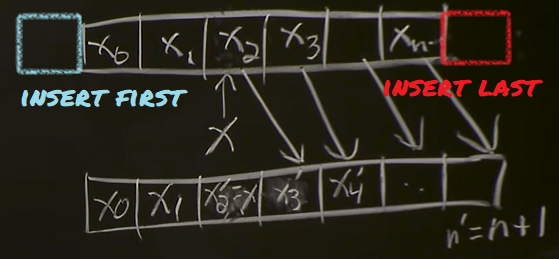 x₀ x₁ x₂ x₃ xₙ₋
INSERT FIRST INSERT LAST
x
x₀ x₁ x₂'=x x₃' x₄' ..
n'=n+1